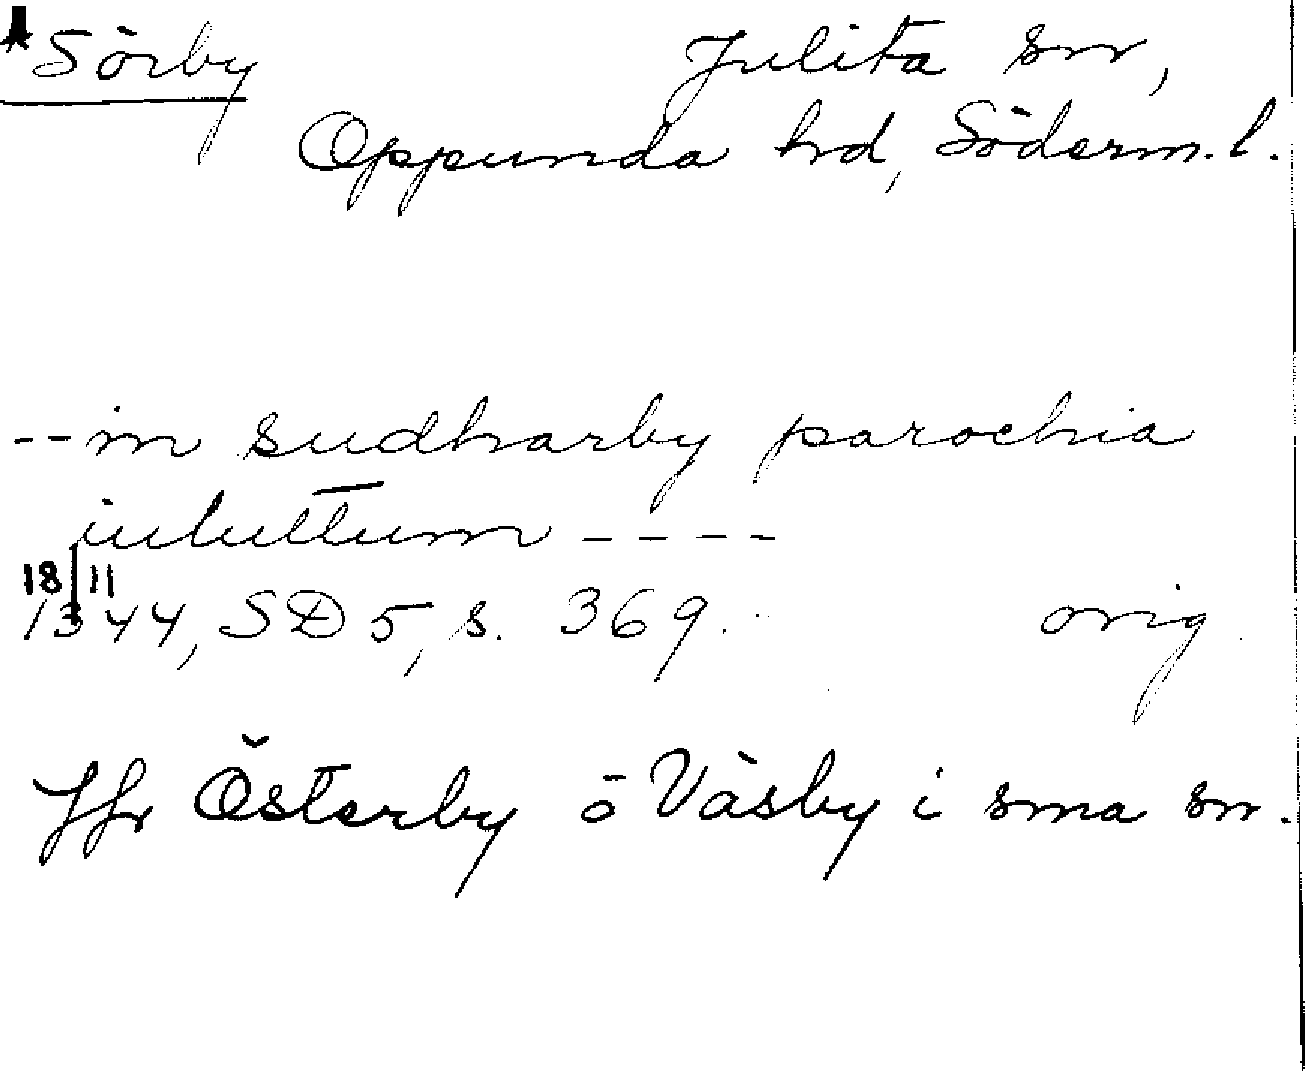 *Sörby Julita sn,
Oppunda hd, Söderm. l.
-- in sudharby parochia
iuluttum ----
18/11
1344, SD 5, s. 369. orig.
Jfr Österby o Väsby i sma sn.